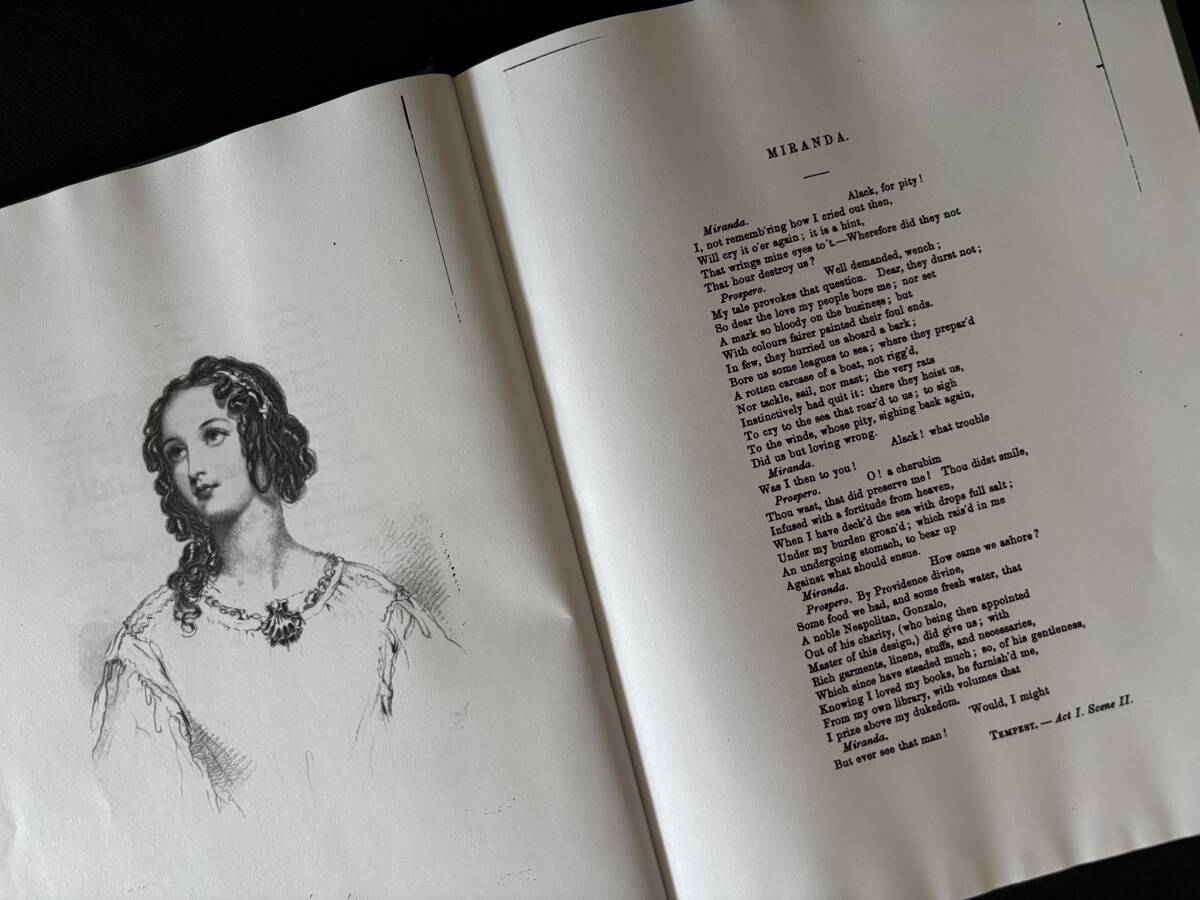 MIRANDA.
Miranda. Alack, for pity!
I, not rememb'ring how I cried out then,
Will cry it o'er again; it is a hint,
That wrings mine eyes to't.—Wherefore did they not
That hour destroy us?
Prospero. Well demanded, wench;
My tale provokes that question. Dear, they durst not;
So dear the love my people bore me; nor set
A mark so bloody on the business; but
With colours fairer painted their foul ends.
In few, they hurried us aboard a bark;
Bore us some leagues to sea; where they prepar'd
A rotten carcase of a boat, not rigg'd,
Nor tackle, sail, nor mast; the very rats
Instinctively had quit it: there they hoist us,
To cry to the sea that roar'd to us; to sigh
To the winds, whose pity, sighing back again,
Did us but loving wrong.
Miranda. Alack! what trouble
Was I then to you!
Prospero. O! a cherubim
Thou wast, that did preserve me! Thou didst smile,
Infused with a fortitude from heaven,
When I have deck'd the sea with drops full salt;
Under my burden groan'd; which rais'd in me
An undergoing stomach, to bear up
Against what should ensue.
Miranda. How came we ashore?
Prospero. By Providence divine,
Some food we had, and some fresh water, that
A noble Neapolitan, Gonzalo,
Out of his charity, (who being then appointed
Master of this design,) did give us; with
Rich garments, linens, stuffs, and necessaries,
Which since have steaded much; so, of his gentleness,
Knowing I loved my books, he furnish'd me,
From my own library, with volumes that
I prize above my dukedom.
Miranda. 'Would, I might
But ever see that man!
TEMPEST.—Act I. Scene II.